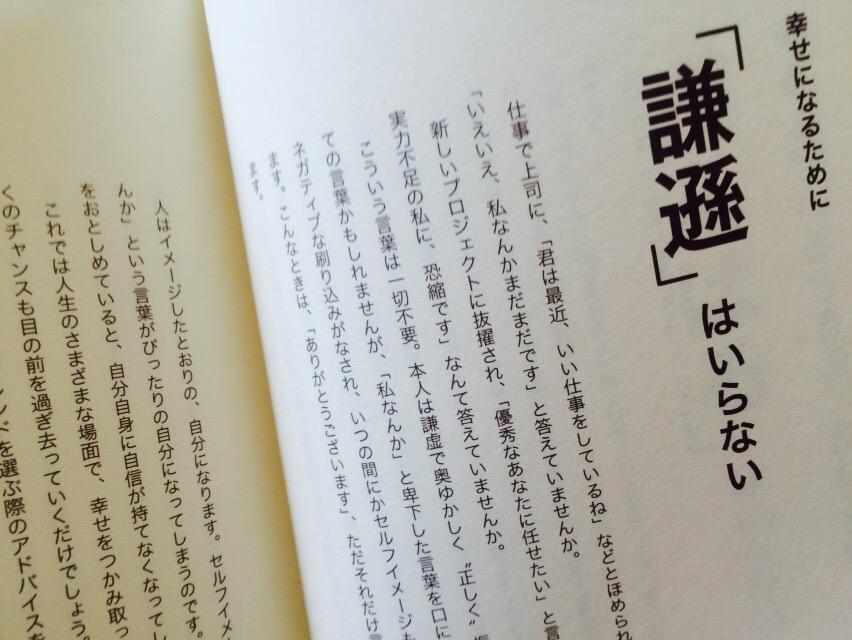 幸せになるために
「謙遜」はいらない
仕事で上司に、「君は最近、いい仕事をしているね」などとほめられ
「いえいえ、私なんかまだまだです」と答えていませんか。
新しいプロジェクトに抜擢され、「優秀なあなたに任せたい」と言
実力不足の私に、恐縮です」なんて答えていませんか。
こういう言葉は一切不要。本人は謙虚で奥ゆかしく〝正しく〟
ての言葉かもしれませんが、「私なんか」と卑下した言葉を口に
ネガティブな刷り込みがなされ、いつの間にかセルフイメージも
ます。こんなときは、「ありがとうございます」、ただそれだけ言
ます。
人はイメージしたとおりの、自分になります。セルフイメ
んか」という言葉がぴったりの自分になってしまうのです。
をおとしめていると、自分自身に自信が持てなくなってし
これでは人生のさまざまな場面で、幸せをつかみ取っ
くのチャンスも目の前を過ぎ去っていくだけでしょう。
ンドを選ぶ際のアドバイスを